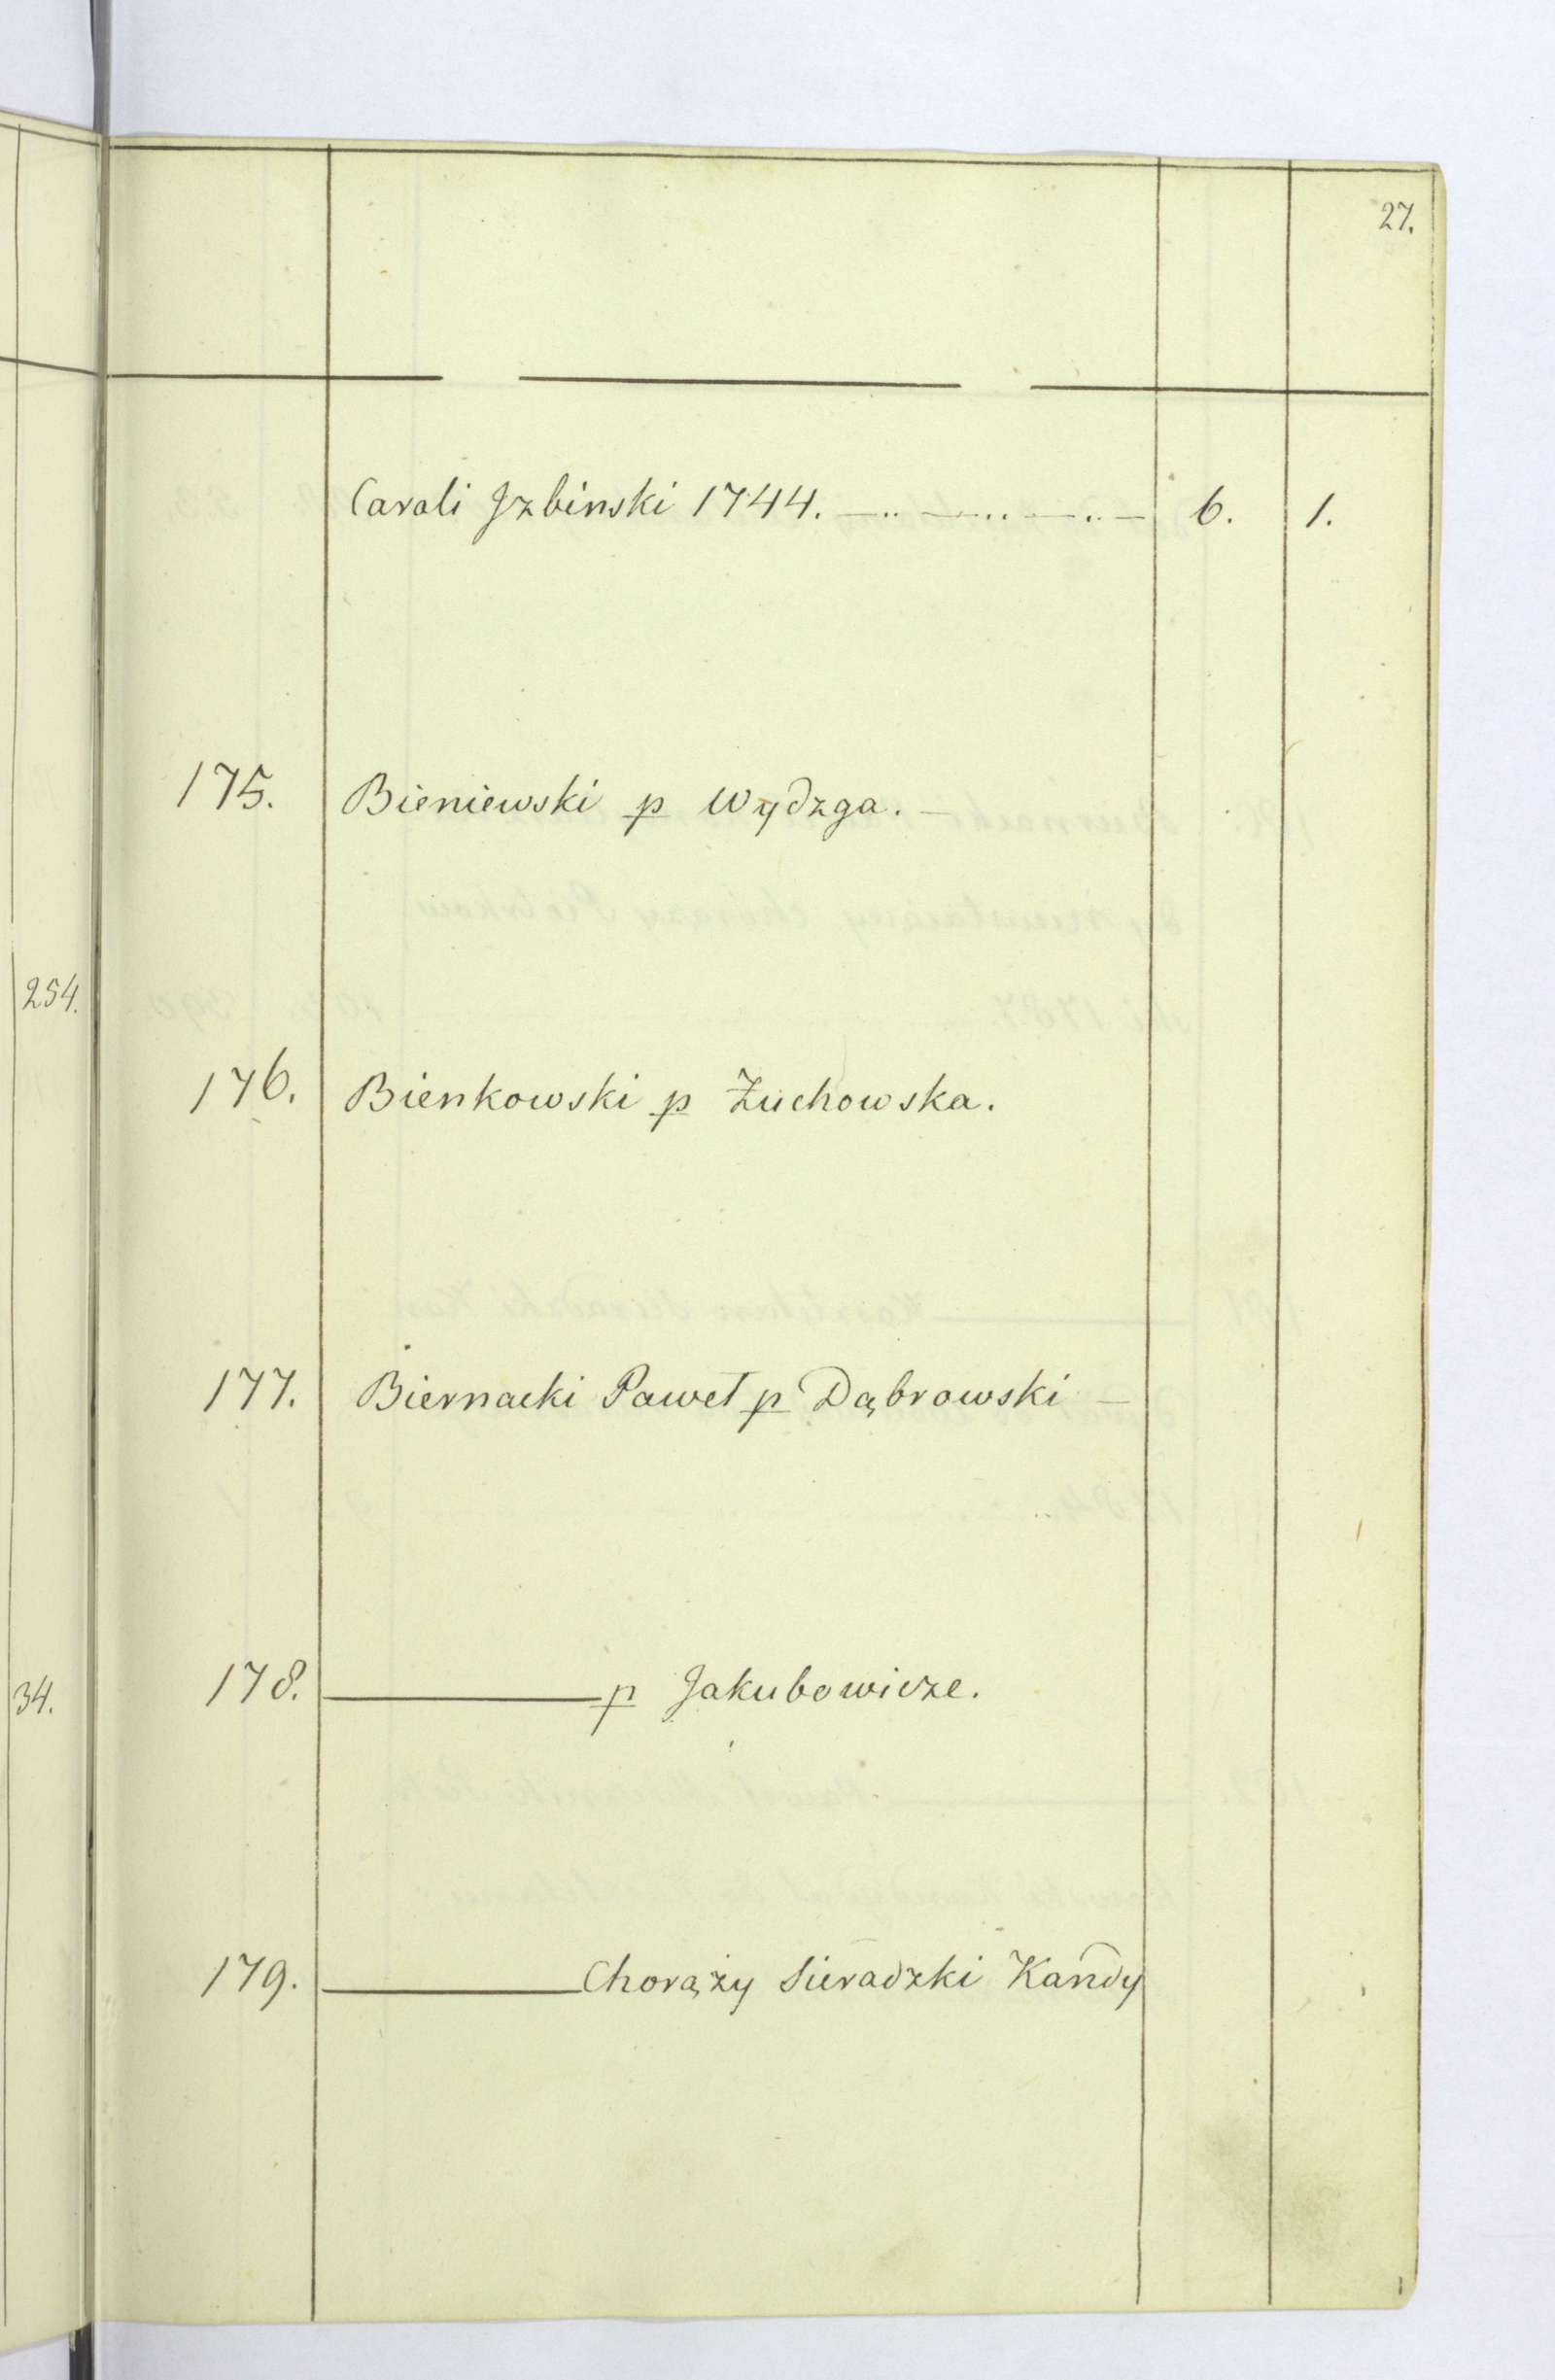 27.
Caroli Jzbinski 1744. 6. 1.
175. Bieniewski p Wydzga.
254.
176. Bienkowski p Żuchowska.
177. Biernacki Paweł p Dąbrowski
178. p Jakubowicze.
34.
179. Chorąży Sieradzki Kandy